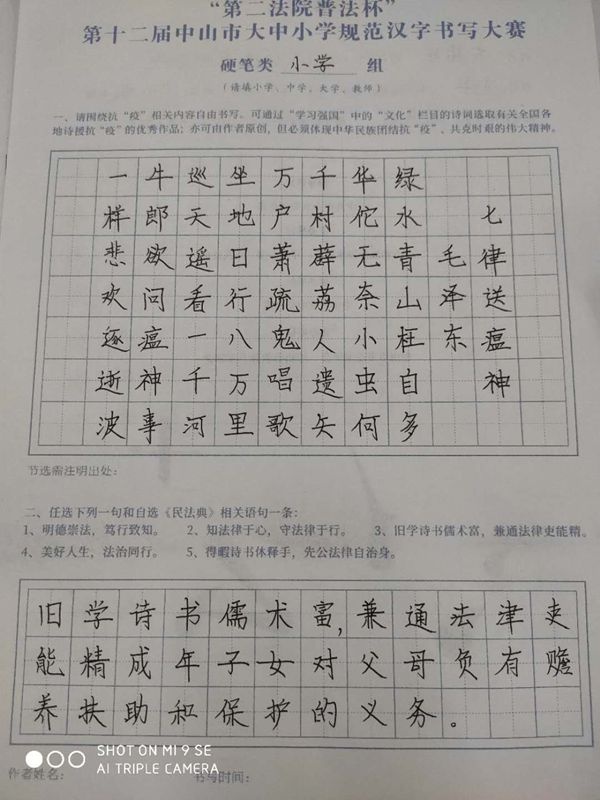 “第二法院普法杯”
第十二届中山市大中小学规范汉字书写大赛
硬笔类 小学 组
（请填小学、中学、大学、教师）
一、请围绕抗“疫”相关内容自由书写。可通过“学习强国”中的“文化”栏目的诗词选取有关全国各
地诗援抗“疫”的优秀作品；亦可由作者原创，但必须体现中华民族团结抗“疫”、共克时艰的伟大精神。
七律送瘟神
毛泽东
绿水青山枉自多
华佗无奈小虫何
千村薜荔人遗矢
万户萧疏鬼唱歌
坐地日行八万里
巡天遥看一千河
牛郎欲问瘟神事
一样悲欢逐逝波
节选需注明出处：
二、任选下列一句和自选《民法典》相关语句一条：
1、明德崇法，笃行致知。 2、知法律于心，守法律于行。 3、旧学诗书儒术富，兼通法律吏能精。
4、美好人生，法治同行。 5、得暇诗书休释手，先公法律自治身。
旧学诗书儒术富，兼通法津吏
能精成年子女对父母负有赡
养扶助和保护的义务。
作者姓名： 书写时间：
SHOT ON MI 9 SE
AI TRIPLE CAMERA